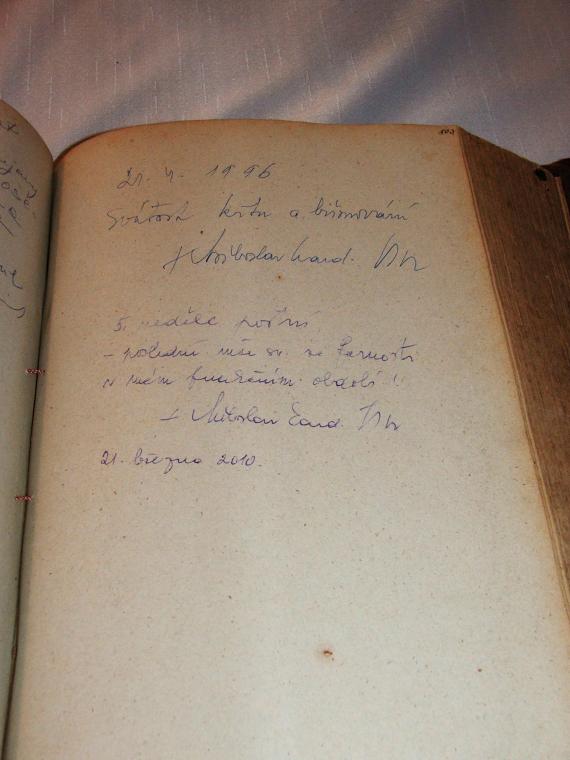 21. 4. 1996
Svátost křtu a biřmování
+ Miloslav Card. Vlk
5. neděle postní
- poslední mše sv. ve farnosti
v mém funkčním období !!
+ Miloslav Card. Vlk
21. března 2010.